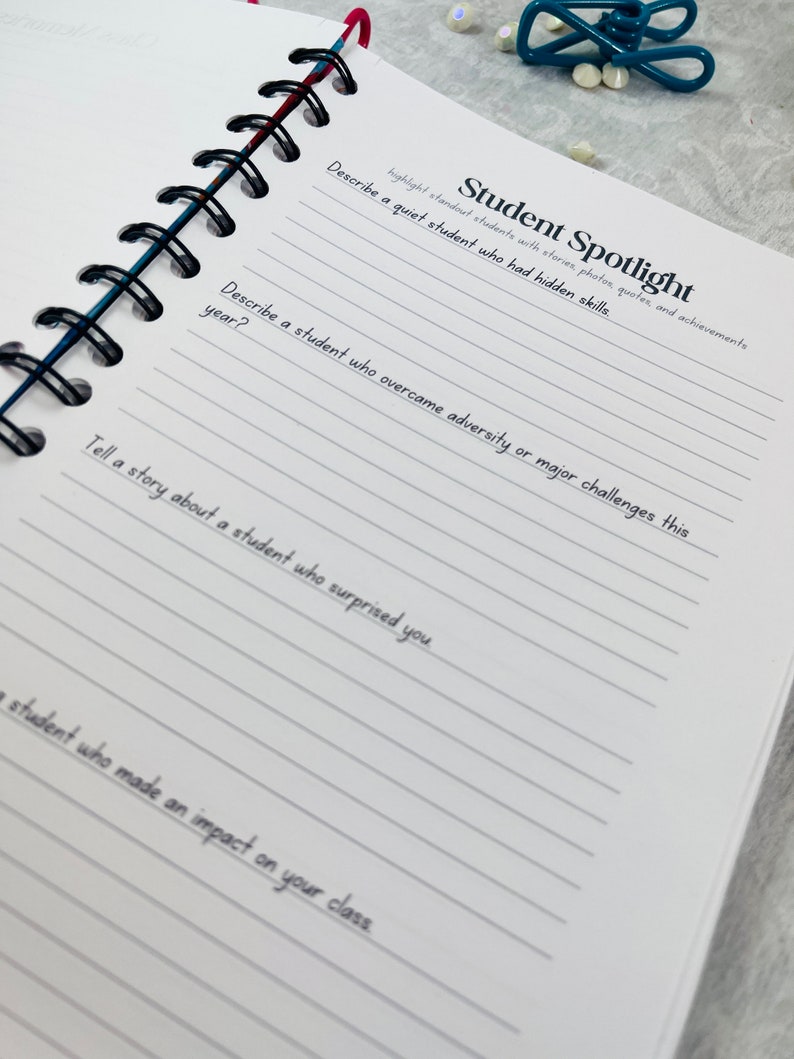 Class Memories
Student Spotlight
highlight standout students with stories, photos, quotes, and achievements
Describe a quiet student who had hidden skills.
Describe a student who overcame adversity or major challenges this
year?
Tell a story about a student who surprised you.
a student who made an impact on your class.